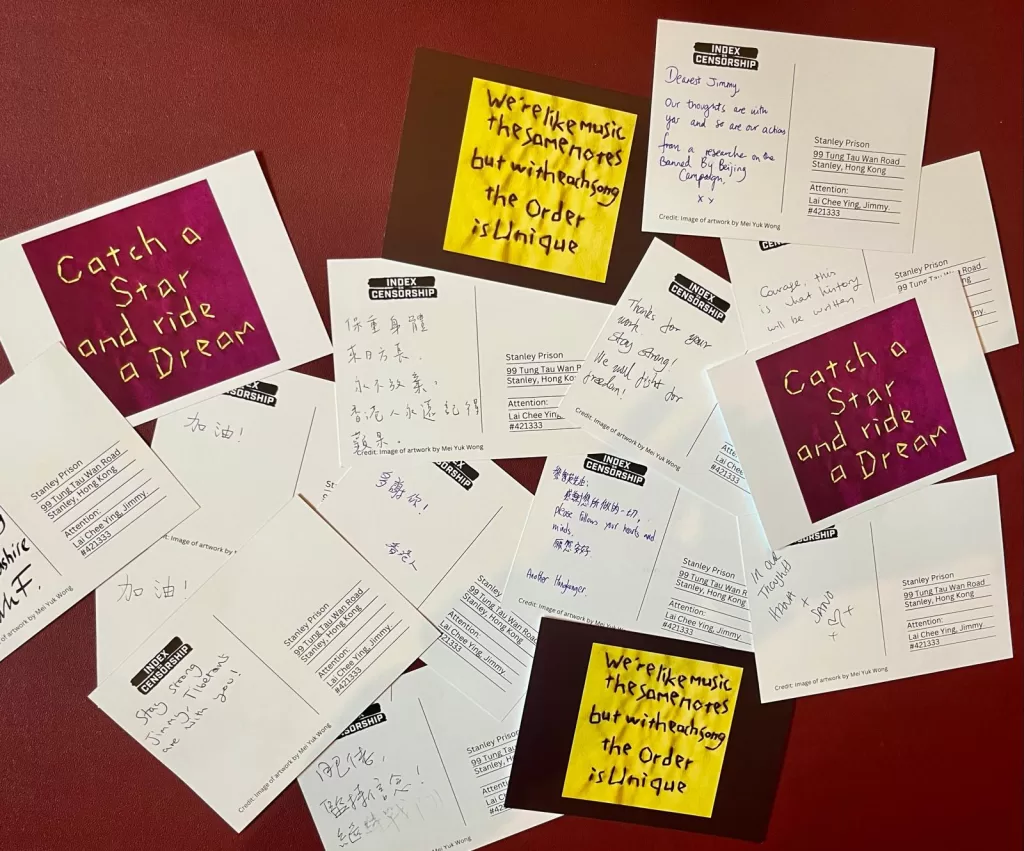 We're like music
the same notes
but with each song
the Order
is Unique
INDEX
ON
CENSORSHIP
Dearest Jimmy,
Our thoughts are with
you and so are our actions
from a researcher on the
Banned By Beijing
Campaign.
x x
Credit: Image of artwork by Mei Yuk Wong
Stanley Prison
99 Tung Tau Wan Road
Stanley, Hong Kong
Attention:
Lai Chee Ying, Jimmy
#421333
Catch a
Star
and ride
a Dream
INDEX
ON
CENSORSHIP
保重身體
來日方長,
永不放棄,
香港人永遠記得
蘋果。
Credit: Image of artwork by Mei Yuk Wong
Stanley Prison
99 Tung Tau Wan Road
Stanley, Hong Ko
Attention:
Lai Chee Ying,
#421333
INDEX
ON
CENSORSHIP
Thanks for your
work.
Stay strong!
We will fight for
freedom!
Credit: Image of artwork by Mei Yuk Wong
Courage, this
is what history
will be written
Stanley Prison
99 Tung Road
Catch a
Star
and ride
a Dream
Stanley Prison
99 Tung Tau Wan Road
Stanley, Hong Kong
Attention:
Lai Chee Ying, Jimmy
#421333
of artwork by Mei Yuk Wong
加油!
Image of artwork by Mei Yuk Wong
多謝你!
香港人
Stanley
99 Tung
Stanley,
Attention:
Lai Chee Ying, Jimmy
#421333
INDEX
ON
CENSORSHIP
please follow your hearts and
minds.
Another Hongkonger
Credit: Image of artwork by Mei Yuk Wong
Stanley Prison
99 Tung Tau Wan R
Stanley, Hong Kong
Attention:
Lai Chee Ying, Jimmy
#421333
In our
Thought
Credit: Image of artwork by Mei Yuk Wong
Stanley Prison
99 Tung Tau Wan Road
Stanley, Hong Kong
Attention:
Lai Chee Ying, Jimmy
#421333
加油!
INDEX
ON
CENSORSHIP
Stay strong
Jimmy. Tibetans
are with you!
Credit: Image of artwork by Mei Yuk Wong
Stanley Prison
99 Tung Tau Wan Road
Stanley, Hong Kong
Attention:
Lai Chee Ying, Jimmy
#421333
肥佬,
堅持信念!
Stanley Pri
99 Tung
Stanley, H
Attenti
Lai C
We're like music
the same notes
but with each song
the Order
is Unique